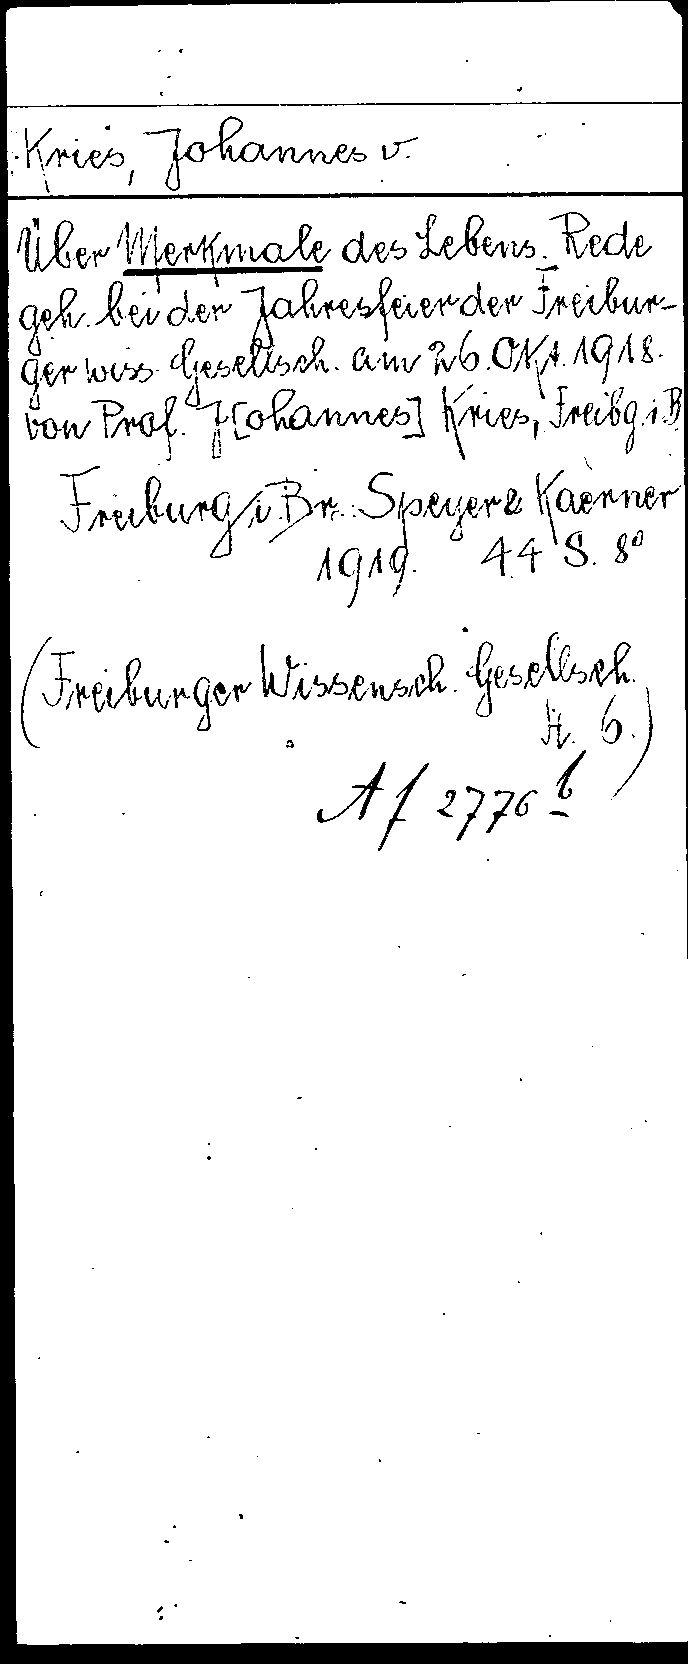 Kries, Johannes v.
Über Merkmale des Lebens. Rede
geh. bei der Jahresfeier der Freibur-
ger wiss. Gesellsch. am 26. Okt. 1918.
von Prof. J[ohannes] Kries, Freibg. i. B
Freiburg i. Br.: Speyer & Kaerner
1919. 44 S. 8°
(Freiburger Wissensch. Gesellsch.
H. 6.)
Af 2776 b